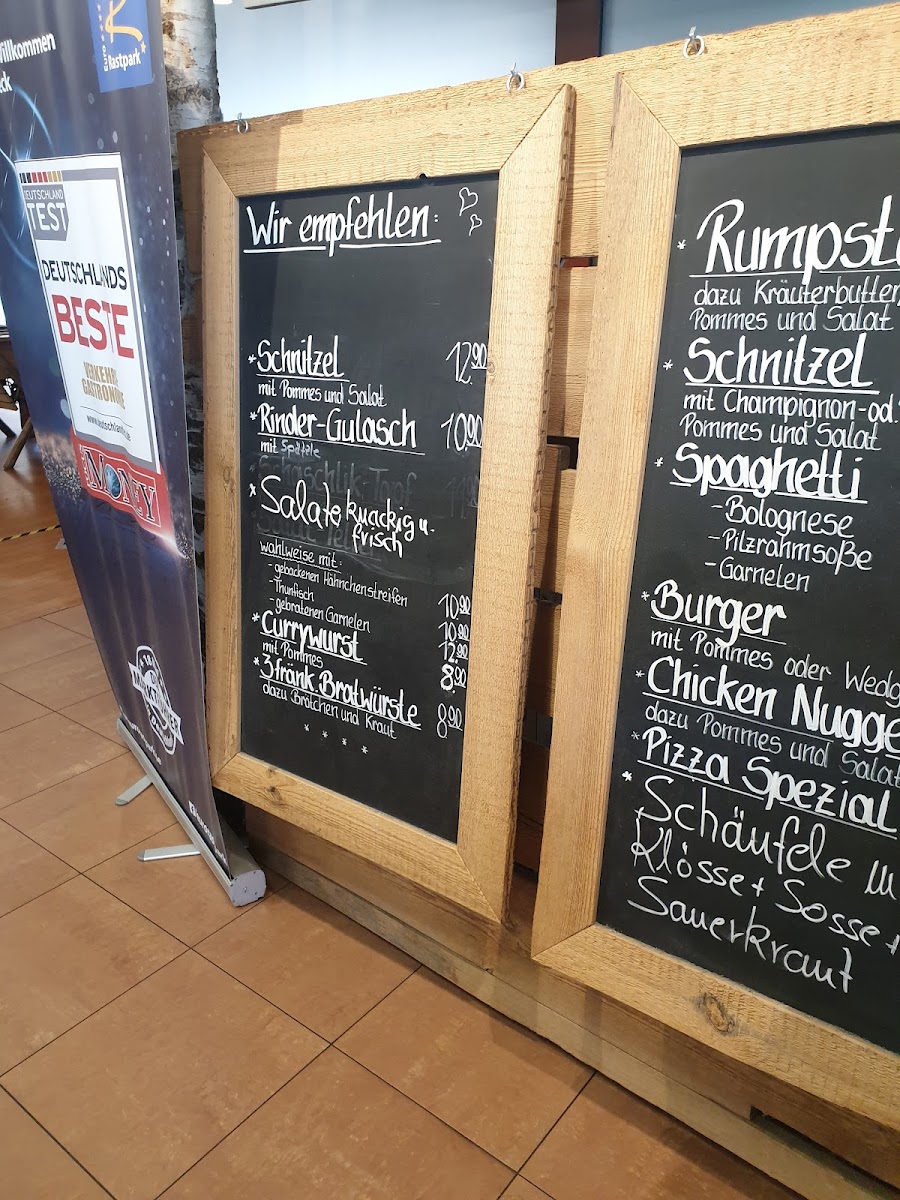 Willkommen
Euro
Rastpark
DEUTSCHLAND
TEST
DEUTSCHLANDS
BESTE
VERKEHRS-
GASTRONOMIE
MONEY
Wir empfehlen:
* Schnitzel 12.90
mit Pommes und Salat
* Rinder-Gulasch 10.90
mit Spätzle
Schaschlik-Topf
* Salate knackig u.
frisch
wahlweise mit:
- gebackenen Hähnchenstreifen 10.90
- Thunfisch 10.90
- gebratenen Garnelen 12.90
* Currywurst 8.90
mit Pommes
* 3 fränk. Bratwürste 8.90
dazu Brötchen und Kraut
* * * *
* Rumpste
dazu Kräuterbutter
Pommes und Salat
* Schnitzel
mit Champignon-od.
Pommes und Salat
* Spaghetti
- Bolognese
- Pilzrahmsoße
- Garnelen
* Burger
mit Pommes oder Wedg
* Chicken Nugge
dazu Pommes und Salat
* Pizza Spezial
* Schäufele m
Klösse + Sosse +
Sauerkraut